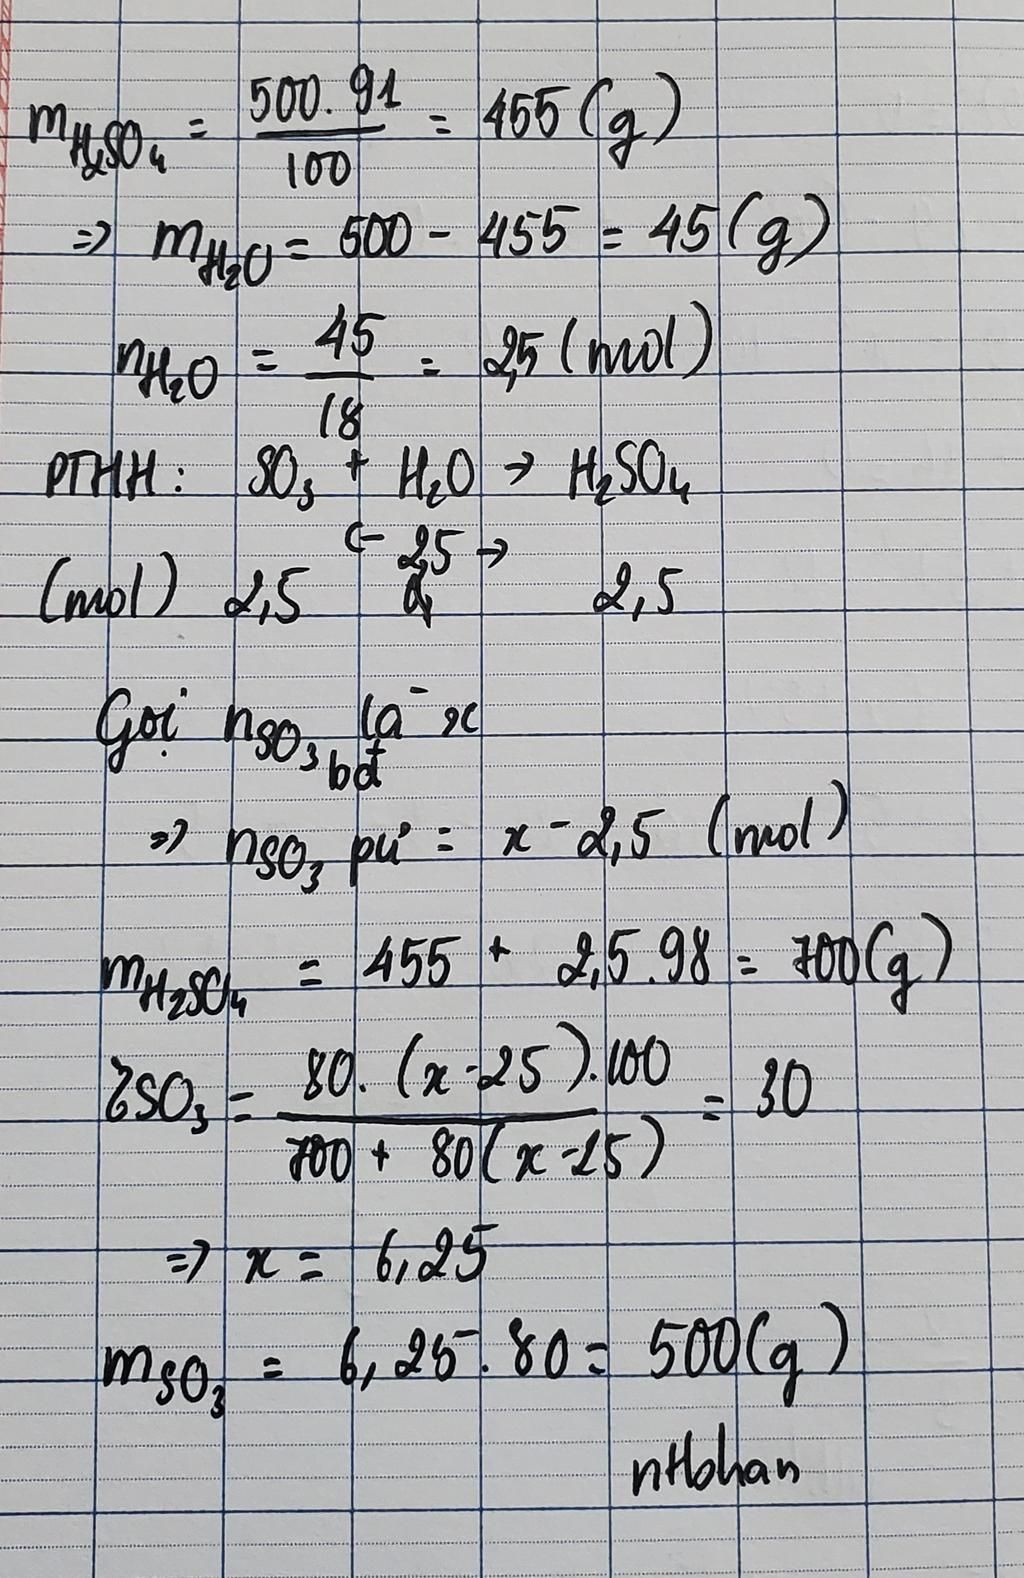 mH₂SO₄ = 500.91/100 = 455 (g)
=> mH₂O = 500 - 455 = 45 (g)
nH₂O = 45/18 = 2,5 (mol)
PTHH: SO₃ + H₂O → H₂SO₄
← 2,5 →
(mol) 2,5 2,5
Gọi nSO₃ bđ là x
=> nSO₃ pứ = x - 2,5 (mol)
mH₂SO₄ = 455 + 2,5.98 = 700 (g)
%SO₃ = 80.(x-25).100/700 + 80(x-25) = 30
=> x = 6,25
mSO₃ = 6,25.80 = 500 (g)